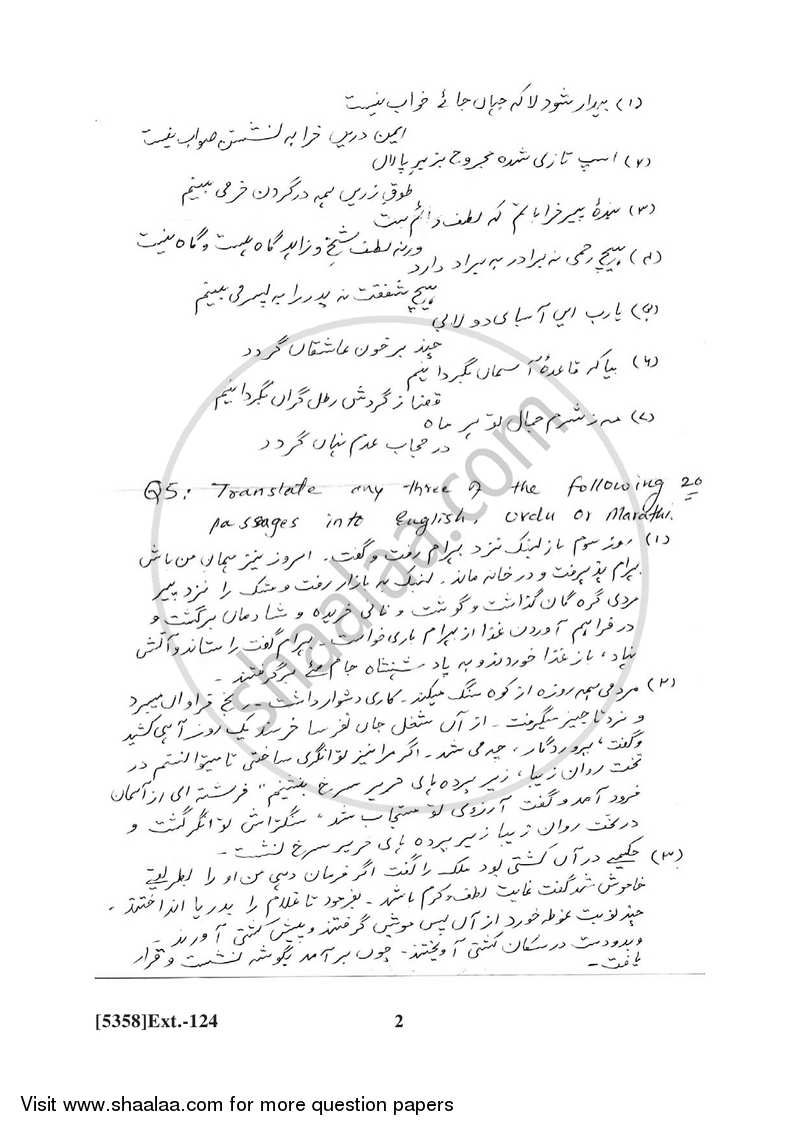 (۱) بیدار شو دلا که جهان جائے خواب نیست
ایمن درین خرابه نشستن صواب نیست
(۲) اسپ تازی شده مجروح بزیر پالان
طوق زریں همه در گردن خر می بینم
(۳) بندۂ پیر خراباتم که لطفش دائم ست
ورنه لطف شیخ و زاهد گاه هست و گاه نیست
(۴) هیچ رحمی نه برادر به برادر دارد
هیچ شفقت نه پدر را به پسر می بینم
(۵) یارب این آسیای دولابی
چند بر خون عاشقان گردد
(۶) بیا که قاعدۂ آسمان بگردانیم
قضا ز گردش رطل گران بگردانیم
(۷) مه ز شرم جمال تو هر ماه
در حجاب عدم نهان گردد
Q5: Translate any three of the following 20
passages into English, Urdu or Marathi.
(۱) روز سوم باز لنبک نزد بهرام رفت و گفت۔ امروز نیز مهمان من باش
بهرام پذیرفت و در خانه ماند۔ لنبک به بازار رفت و مشک را نزد پیر
مردی گروگان گذاشت و گوشت و نانی خریده و شادمان برگشت و
در فراهم آوردن غذا از بهرام یاری خواست۔ بهرام گفت را ستاند و آتش
نهاد، باز غذا خوردند و به یاد شهنشاه جام مئے برگرفتند۔
(۲) مردمی همه روزه از کوه سنگ میکند۔ کاری دشوار داشت۔ رنج فراوان میبرد
و مزد ناچیز میگرفت۔ از آن شغل جان فرسا خرسند یک روز آهی کشید
و گفت، پروردگار، چه می شد۔ اگر مرا نیز توانگری ساختی تا میتوانستم در
تخت روان زیبا، زیر پرده های حریر سرخ بنشینم" فرشته ای از آسمان
فرود آمد و گفت آرزوی تو مستجاب شد، سنگتراش توانگر گشت و
در تخت روان زیبا زیر پرده های حریر سرخ نشست۔
(۳) حکیمے در آن کشتی بود ملک را گفت اگر فرمان دهی من او را بطریقے
خاموش کنم گفت غایت لطف و کرم باشد۔ بفرمود تا غلام را بدریا انداختند۔
چند نوبت غوطه خورد از آن پس مویش گرفتند و پیش کشتی آوردند
و بدو دست در سکان کشتی آویختند۔ چون بر آمد بگوشه نشست و قرار
یافت۔
[5358]Ext.-124 2
Visit www.shaalaa.com for more question papers
shaalaa.com